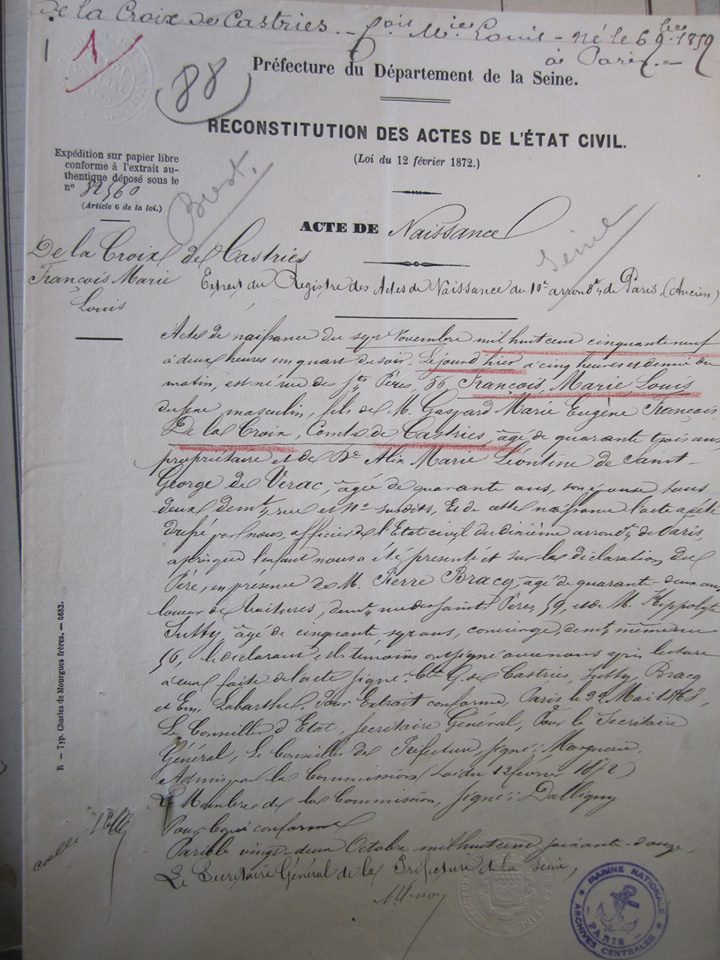 de la Croix de Castries - fois Mie Louis - Né le 6 9bre 1859
à Paris. -
1
88
Préfecture du Département de la Seine.
RECONSTITUTION DES ACTES DE L'ÉTAT CIVIL.
(Loi du 12 février 1872.)
Expédition sur papier libre
conforme à l'extrait au-
thentique déposé sous le
n° 82560
(Article 6 de la loi.)
Brest.
Seine
ACTE DE Naissance
De la Croix de Castries
François Marie
Louis
Extrait du Registre des Actes de Naissance du 10e arrondt de Paris (Ancien)
Acte de naissance du sept Novembre mil huit cent cinquante neuf
à deux heures un quart du soir. Le jour d'hier à cinq heures et demie du
matin, est né rue des Sts Pères, 56, François, Marie Louis
du sexe masculin, fils de M. Gaspard Marie Eugène François
De la Croix, Comte de Castries, âgé de quarante trois ans
propriétaire et de De Alix Marie Léontine de Saint-
George de Vérac, âgée de quarante ans, son épouse tous
deux demt rue et No susdits, Et de cette naissance l'acte a été
dressé par nous, officier de l'Etat civil du dixième arrondt de Paris,
après que l'enfant nous a été présenté et sur la déclaration du
Père, en présence de M. Pierre Bracq, âgé de quarante-deux ans
loueur de voitures, demt rue des Saints Pères 59, et de M. Hippolyte
Sutty, âgé de cinquante sept ans, concierge, demt même rue
56, le déclarant et les témoins ont signé avec nous après lecture
à eux faite de l'acte signé: Cte G. de Castries, Sutty, Bracq
et Em. Labarthe. Pour Extrait conforme, Paris le 22 Mai 1868,
Le Conseiller d'Etat, Secrétaire Général, Pour le Secrétaire
Général, Le Conseiller de Préfecture, signé:
Admis par la Commission (Loi du 12 février 1872)
Le Membre de la Commission, signé: Dalligny
Pour Copie conforme
Paris le vingt-deux Octobre mil huit cent soixante-douze.
Le Secrétaire Général de la Préfecture de la Seine,
B - Typ. Charles de Mourgues frères. - 4682.
MARINE NATIONALE
PARIS
ARCHIVES CENTRALES